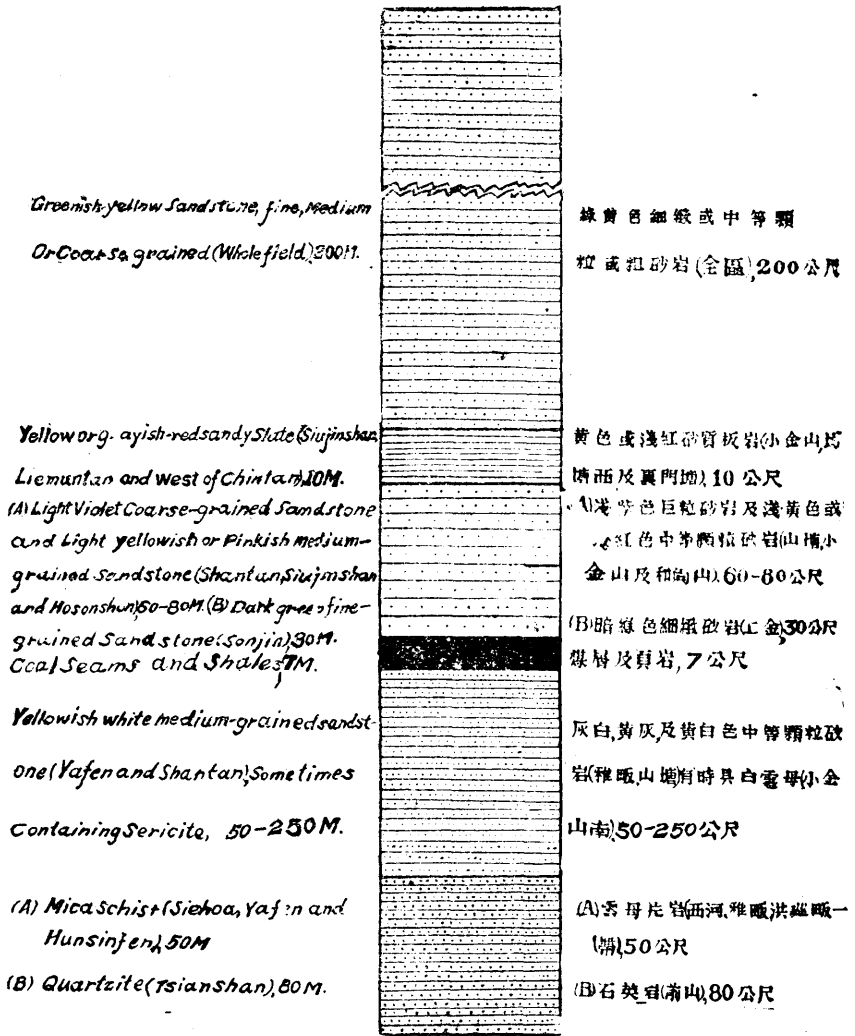 Greenish-yellow Sandstone, fine, Medium
Or Coarse grained (Whole field), 200M.
Yellow or g- ayish-red sandy Slate (Siujinshan,
Liemuntan and West of Chintan), 10M.
(A) Light Violet Coarse-grained Sandstone
and Light yellowish or Pinkish medium-
grained Sandstone (Shantan, Siujinshan
and Hosonshun), 60-80M. (B) Dark green fine-
grained Sandstone (Sonjin), 30M.
Coal Seams and Shales, 7M.
Yellowish white medium-grained sandst-
one (Yafen and Shantan), Sometimes
Containing Sericite, 50-250M.
(A) Mica Schist (Siehoa, Yafen and
Hunsinfen), 50M
(B) Quartzite (Tsianshan), 80M.
綠黃色細緻或中等顆
粒或粗砂岩(全區), 200公尺
黃色或淺紅砂質板岩(小金山,
塘西及裏門塘), 10公尺
(A)淺紫色巨粒砂岩及淺黃色或
紅色中等顆粒砂岩(山塘,小
金山及和尚山), 60-80公尺
(B)暗綠色細緻砂岩, 30公尺
煤層及頁岩, 7公尺
灰白,黃灰,及黃白色中等顆粒砂
岩(雅畈,山塘)有時具白雲母(小金
山南), 50-250公尺
(A)雲母片岩(西河,雅畈,洪 畈一
帶), 50公尺
(B)石英岩(前山), 80公尺